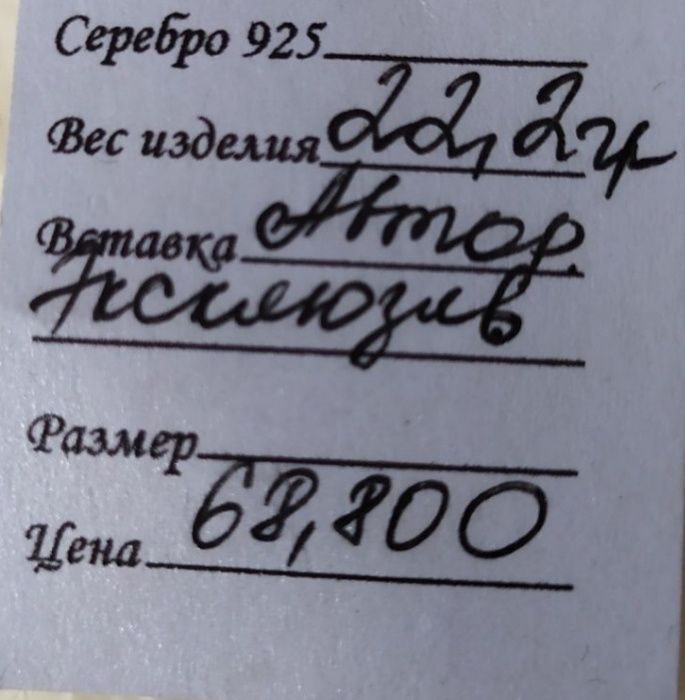 Серебро 925
Вес изделия 22,2гр
Вставка Автор.
Эксклюзив
Размер
Цена 68,800